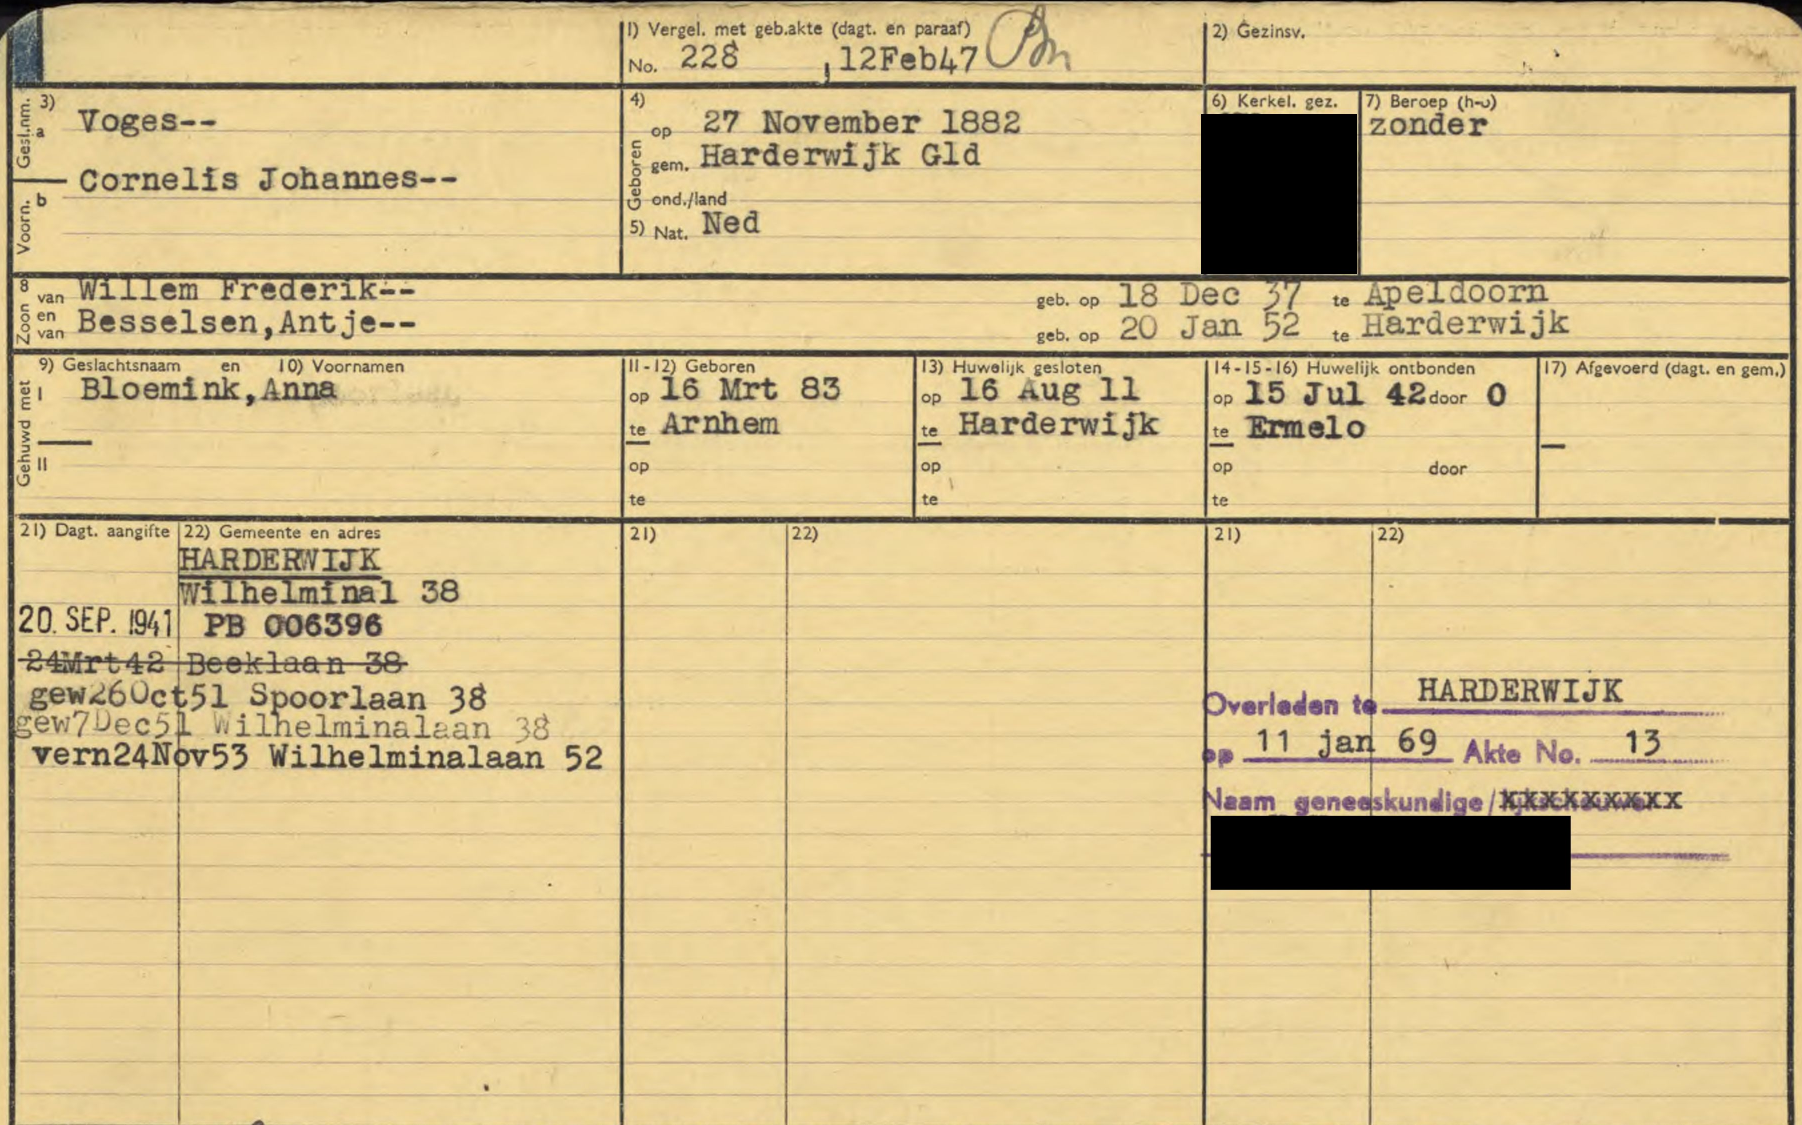 1) Vergel. met geb.akte (dagt. en paraaf)
No. 228 , 12Feb47
2) Gezinsv.
Gesl.nm. 3) a Voges--
Voorn. b Cornelis Johannes--
4) Geboren
op 27 November 1882
gem. Harderwijk Gld
ond./land
5) Nat. Ned
6) Kerkel. gez.
7) Beroep (h-o)
zonder
8 Zoon van Willem Frederik-- geb. op 18 Dec 37 te Apeldoorn
en van Besselsen,Antje-- geb. op 20 Jan 52 te Harderwijk
Gehuwd met
9) Geslachtsnaam en 10) Voornamen
I Bloemink,Anna
II
11-12) Geboren
op 16 Mrt 83
te Arnhem
op
te
13) Huwelijk gesloten
op 16 Aug 11
te Harderwijk
op
te
14-15-16) Huwelijk ontbonden
op 15 Jul 42 door O
te Ermelo
op door
te
17) Afgevoerd (dagt. en gem.)
21) Dagt. aangifte 22) Gemeente en adres
HARDERWIJK
Wilhelminal 38
20. SEP. 1941 PB 006396
24Mrt42 Beeklaan 38
gew26Oct51 Spoorlaan 38
gew7Dec51 Wilhelminalaan 38
vern24Nov53 Wilhelminalaan 52
21) 22)
21) 22)
Overleden te HARDERWIJK
op 11 jan 69 Akte No. 13
Naam geneeskundige/xxxxxxxxx